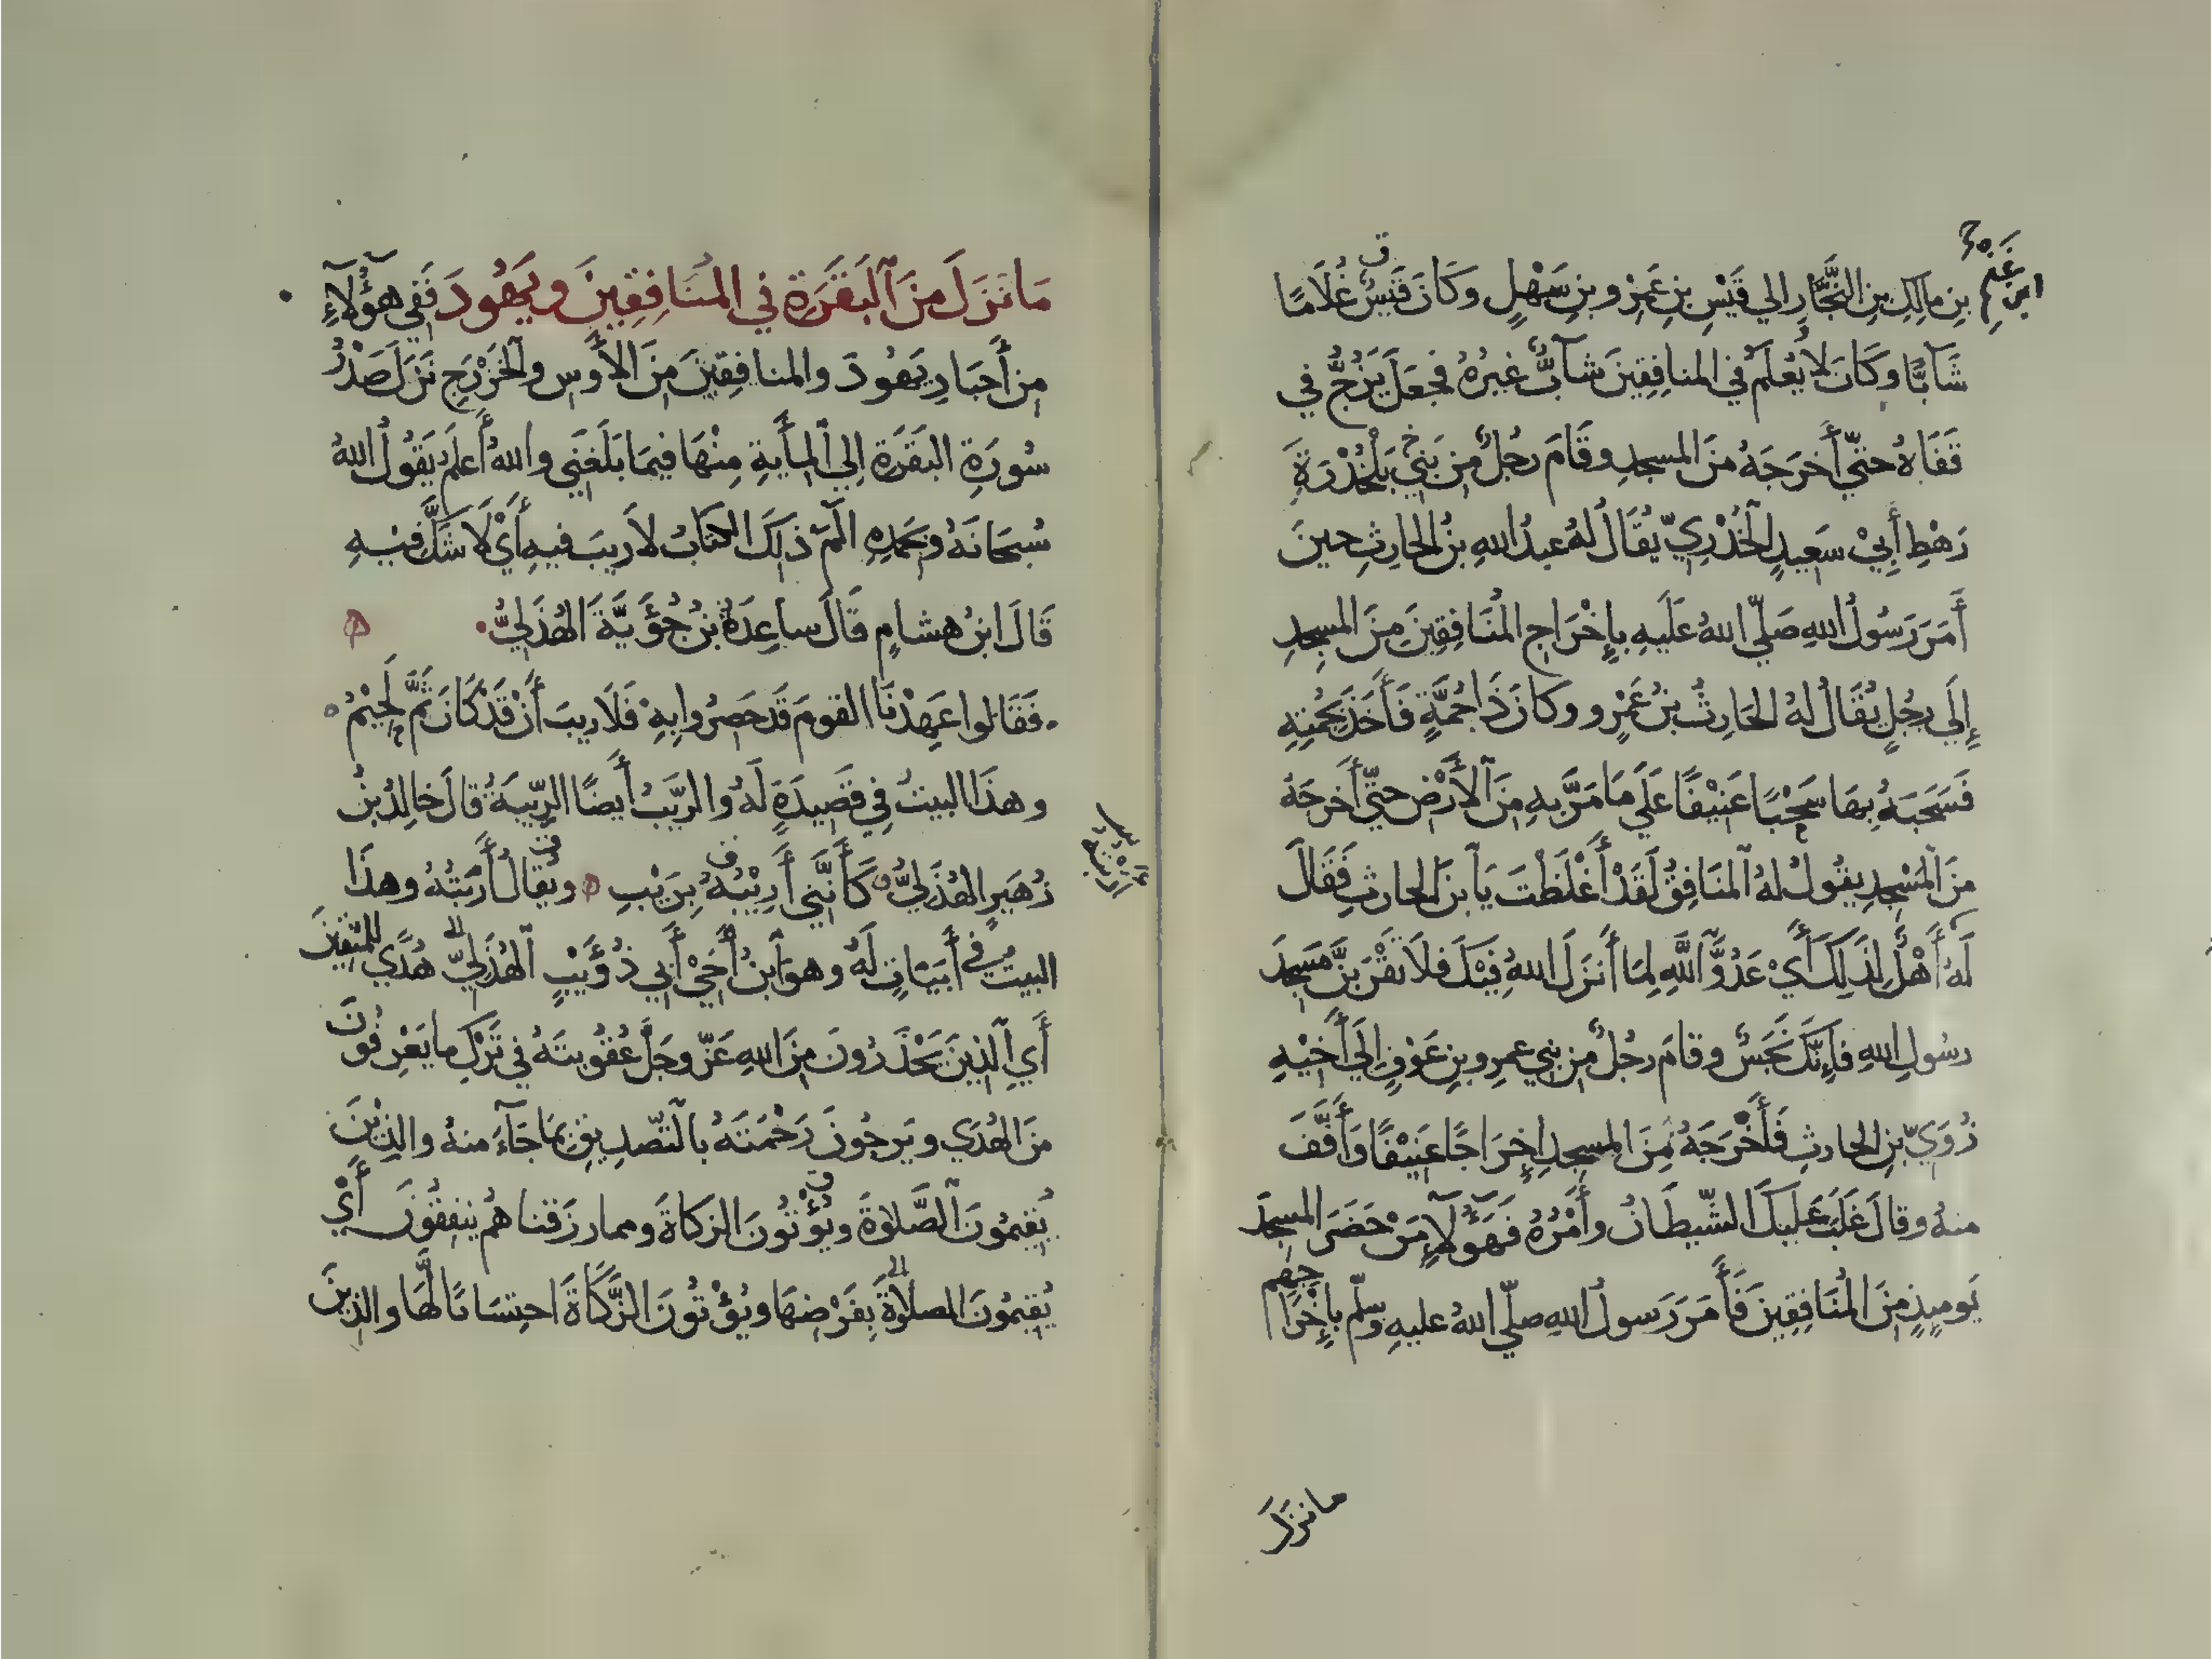 بنِ مالِكِ بنِ النَّجَّارِ الي قَيْسِ بنِ عَمرِو بنِ سَهْلٍ وكَانَ قَيسٌ غُلَامًا
شَآبًّا وكَانَ لا يُعْلَمُ في المنافِقِينَ شآبٌّ غيرُهُ فجعَلَ يَزُخُّ في
قَفَاهُ حتّي أَخرَجَهُ منَ المسجدِ وقَامَ رجُلٌ من بَنِي بَلْخُدْرَةَ
رَهْطِ أَبِيْ سَعيدٍ الخُدْرِيّ يُقَالُ لهُ عبدُ اللهِ بنُ الحارثِ حينَ
أَمَرَ رَسُولُ اللهِ صَلّي اللهُ عَلَيهِ بإِخْرَاجِ المُنَافِقِينَ مِنَ المسجِدِ
إِلَي رجُلٍ يُقَالُ لهُ الحَارِثُ بنُ عَمْرٍو وكانَ ذَا جُمَّةٍ فَأَخَذَ بِجُمتِهِ
فَسَحَبَهُ بِهَا سَحْبًا عَنِيْفًا عَلَي مَا مَرَّ بهِ مِنَ الأَرْضِ حتّي أَخرجَهُ
منَ المَسْجدِ يقُولُ لهُ المنَافِقُ لَقَدْ أَغْلَظْتَ يَا بنَ الحارثِ فَقَالَ
لَهُ أَهْلٌ لِذَلِكَ أَيْ عَدُوَّ اللَّهِ لِمَا أَنزَلَ اللهُ فِيْكَ فلَا تَقْرَبَنَّ مَسجدَ
رسُولِ اللهِ فَإِنَّكَ نَجَسٌ وقامَ رجُلٌ من بني عمرِو بنِ عَوْفٍ إلَي أَخِيْهِ
زُوَيِّ بنِ الحارثِ فَأَخْرَجَهُ مِنَ المسجدِ إِخرَاجًا عَنِيْفًا وَأَفَّفَ
منهُ وقالَ غَلَبَ عَلَيكَ الشّيطَانُ وأَمْرُهُ فَهَؤُلَآءِ مَنْ حَضَرَ المسجِدَ
يَومئِذٍ مِنَ المُنَافِقِينَ فَأَمَرَ رَسولُ اللهِ صلّي اللهُ عليهِ وسلّم بإِخْرَاجِهِم
ما نزَلَ
مَا نَزَلَ مِنَ البَقَرَةِ في المُنَافِقِينَ ويَهُودَ فَفِي هَؤُلَآءِ
من أَحبَارِ يَهُودَ والمنافِقِينَ مِنَ الأَوسِ والخَزْرَجِ نَزَلَ صَدْرُ
سُورَةِ البَقَرَةِ إلي المِأيةِ مِنْهَا فيمَا بَلَغَنِي واللهُ أَعلَمُ يَقُولُ اللهُ
سُبحَانَهُ وبحَمدِهِ الٓمٓ ذلكَ الكتَابُ لاَ ريبَ فيهِ أَيْ لَا شَكَّ فيْهِ
قَالَ ابنُ هشامٍ قَالَ ساعِدَةُ بنُ جُؤَيَّةَ الهُذَلِيُّ
فَقَالوا عَهِدْنَا القومَ قَد حَصِرُوا بِهِ فَلَا ريبَ أَنْ قَدْ كَانَ ثَمَّ لَحِيْمُ
وهذَا البيتُ فِي قَصِيدَةٍ لَهُ والرّيَبُ أَيضًا الرِّيبَةُ قالَ خَالِدُ بنُ
زُهَيرٍ الهُذَلِيُّ كَأَنَّنِي أَرِيْبُهُ بِرَيْبِ ويُقالُ أَرَبْتُهُ وهذَا
البيتُ في أَبيَاتٍ لَهُ وهوَ ابنُ أَخِيْ أَبِي ذُؤَيْبٍ الهُذَلِيِّ هُدًي للمُتّقِينَ
أَيِ الذِينَ يَحْذَرُونَ مِنَ اللهِ عَزّ وجَلَّ عُقُوبتَهُ في تَرْكِ ما يَعْرِفُونَ
منَ الهُدَي ويَرجُونَ رَحْمَتَهُ بالتّصدِيقِ بمَا جَآءَ منهُ والذِيْنَ
يُقيمُونَ الصَّلوٰةَ ويُؤْتُونَ الزكاةَ ومما رزَقناهُم ينفِقُونَ أَيْ
يُقِيمُونَ الصلاةَ بِفَرْضِهَا ويُؤْتُونَ الزَّكَاةَ احتِسَابًا لَهَا والذينَ